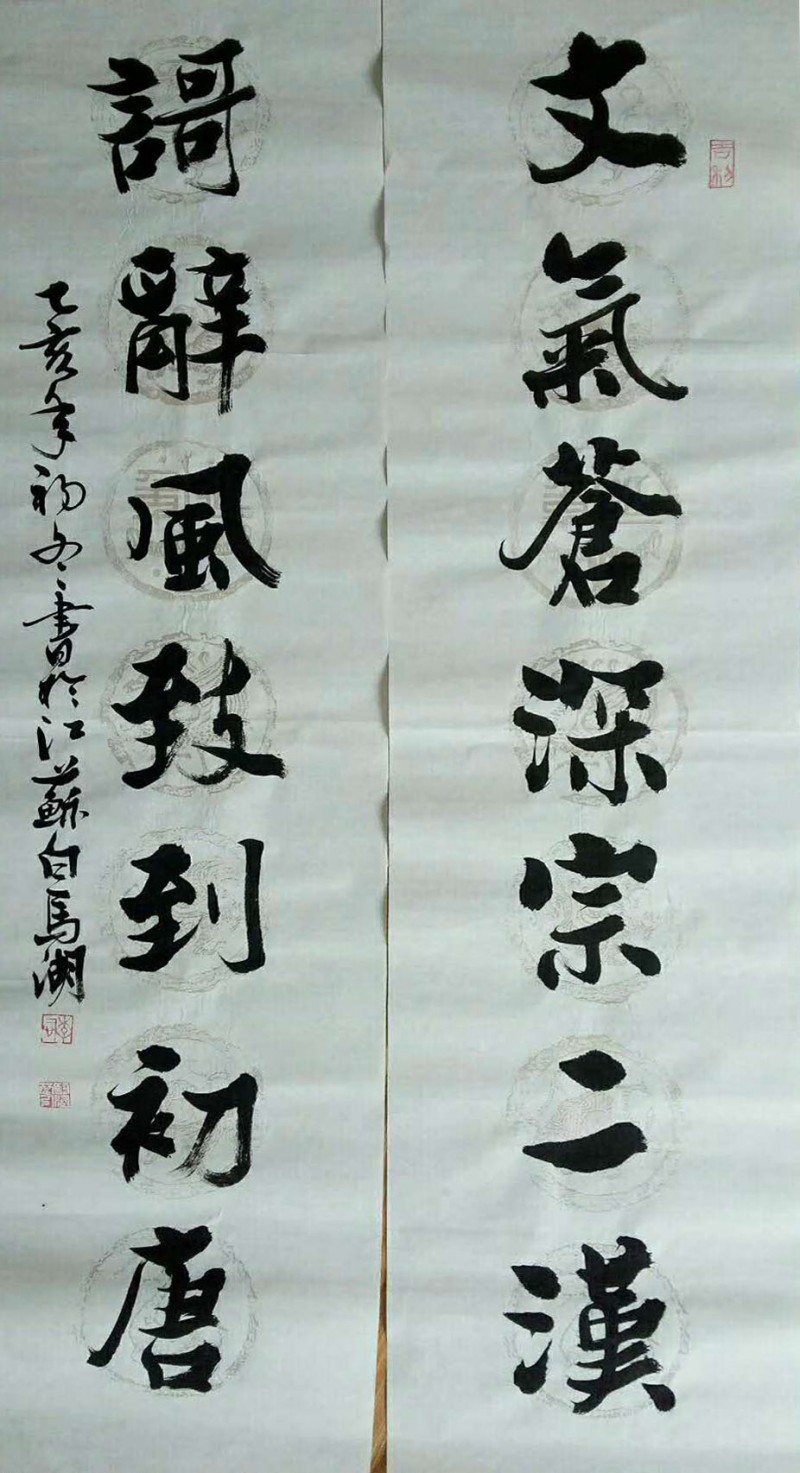 文氣蒼深宗二漢
謌辭風致到初唐
己亥年初冬書於江蘇白馬湖